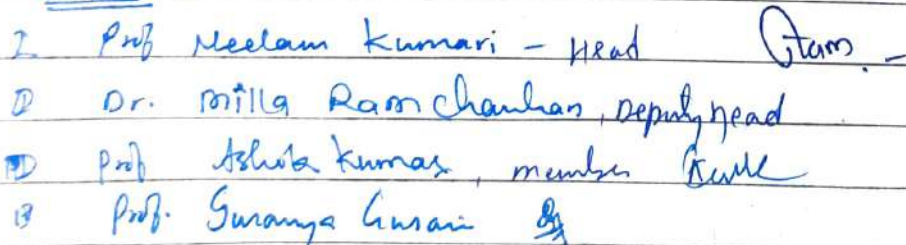 I Prof Neelam Kumari - Head
II Dr. Milla Ram Chauhan, Deputy head
Prof Ashok Kumar, member
Prof. Suranya